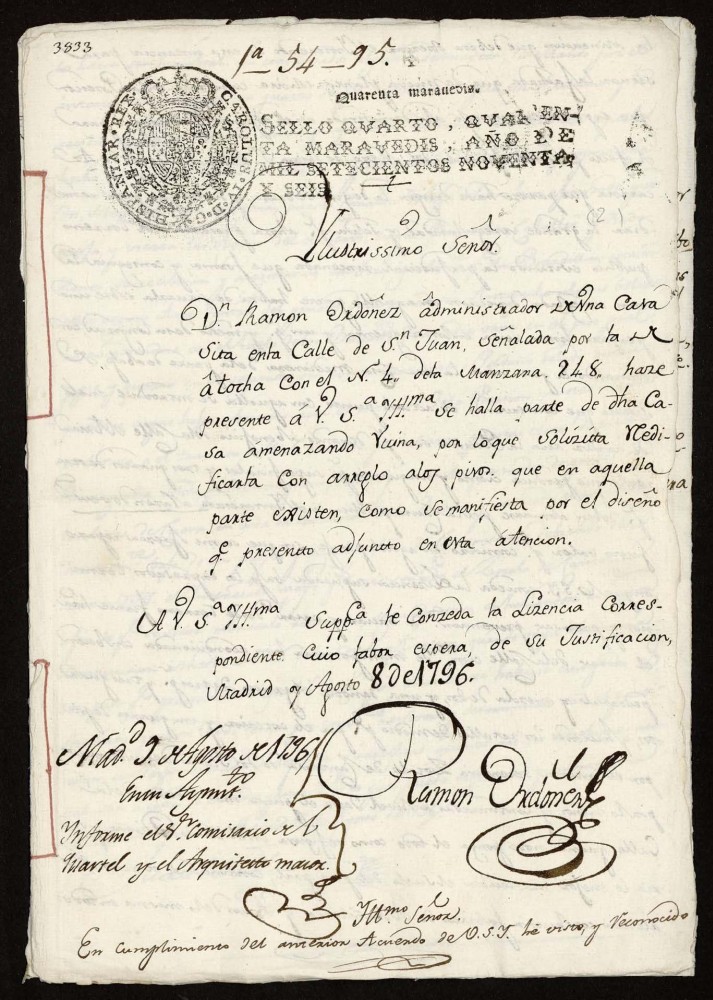 3833
1a 54-95.
Quarenta maravedis.
SELLO QVARTO, QVAREN-
TA MARAVEDIS, AÑO DE
MIL SETECIENTOS NOVENTA
Y SEIS
CAROLUS IV D. G. HISPANIAR. REX
(2)
Yllustrissimo Señor.
Dn. Ramon Ordoñez administrador de una Casa
Sita enla Calle de Sn Juan, señalada por la de
Atocha Con el N. 4. dela Manzana, 248, haze
presente á V. S.a Yllma se halla parte de dha Ca-
sa amenazando Ruina, por loque solizita Redi-
ficarla Con arreglo alos pisos que en aquella
parte existen, como se manifiesta por el diseño
qe. presento adjuncto en esta atencion.
A V. S.a Yllma Suppca le Conzeda la Lizencia Corres-
pondiente Cuio fabor espera, de su Justificacion,
Madrid y Agosto 8 de 1796.
Ramon Ordoñez
Mad.d 9. de Agosto de 1796
En su Aymto.
Ynforme el Sr. Comisario de
Quartel y el Arquitecto maior.
Yllmo. Señor.
En cumplimiento del anterior Acuerdo de V.S.Y. he visto, y reconocido